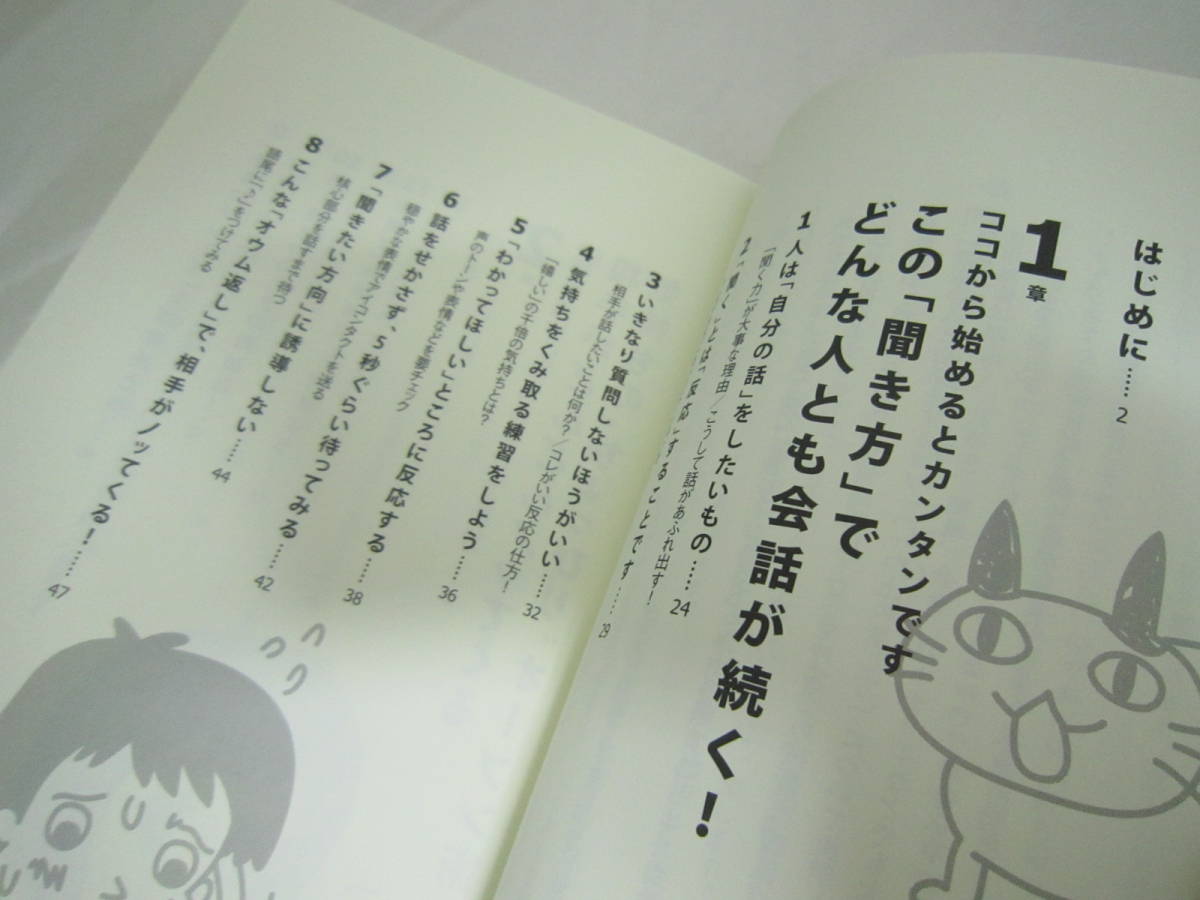 はじめに……2
1章
ココから始めるとカンタンです
この「聞き方」で
どんな人とも会話が続く!
1 人は「自分の話」をしたいもの……24
「聞く力」が大事な理由/こうして話があふれ出す!
2 「聞く」とは「反応」することです……29
3 いきなり質問しないほうがいい……32
相手が話したいことは何か?/コレがいい反応の仕方!
4 気持ちをくみ取る練習をしよう……36
「嬉しい」の千倍の気持ちとは?
5 「わかってほしい」ところに反応する……38
声のトーンや表情などを要チェック
6 話をせかさず、5秒ぐらい待ってみる……42
穏やかな表情でアイコンタクトを送る
7 「聞きたい方向」に誘導しない……44
核心部分を話すまで待つ
8 こんな「オウム返し」で、相手がノッてくる!……47
語尾に「♪」をつけてみる